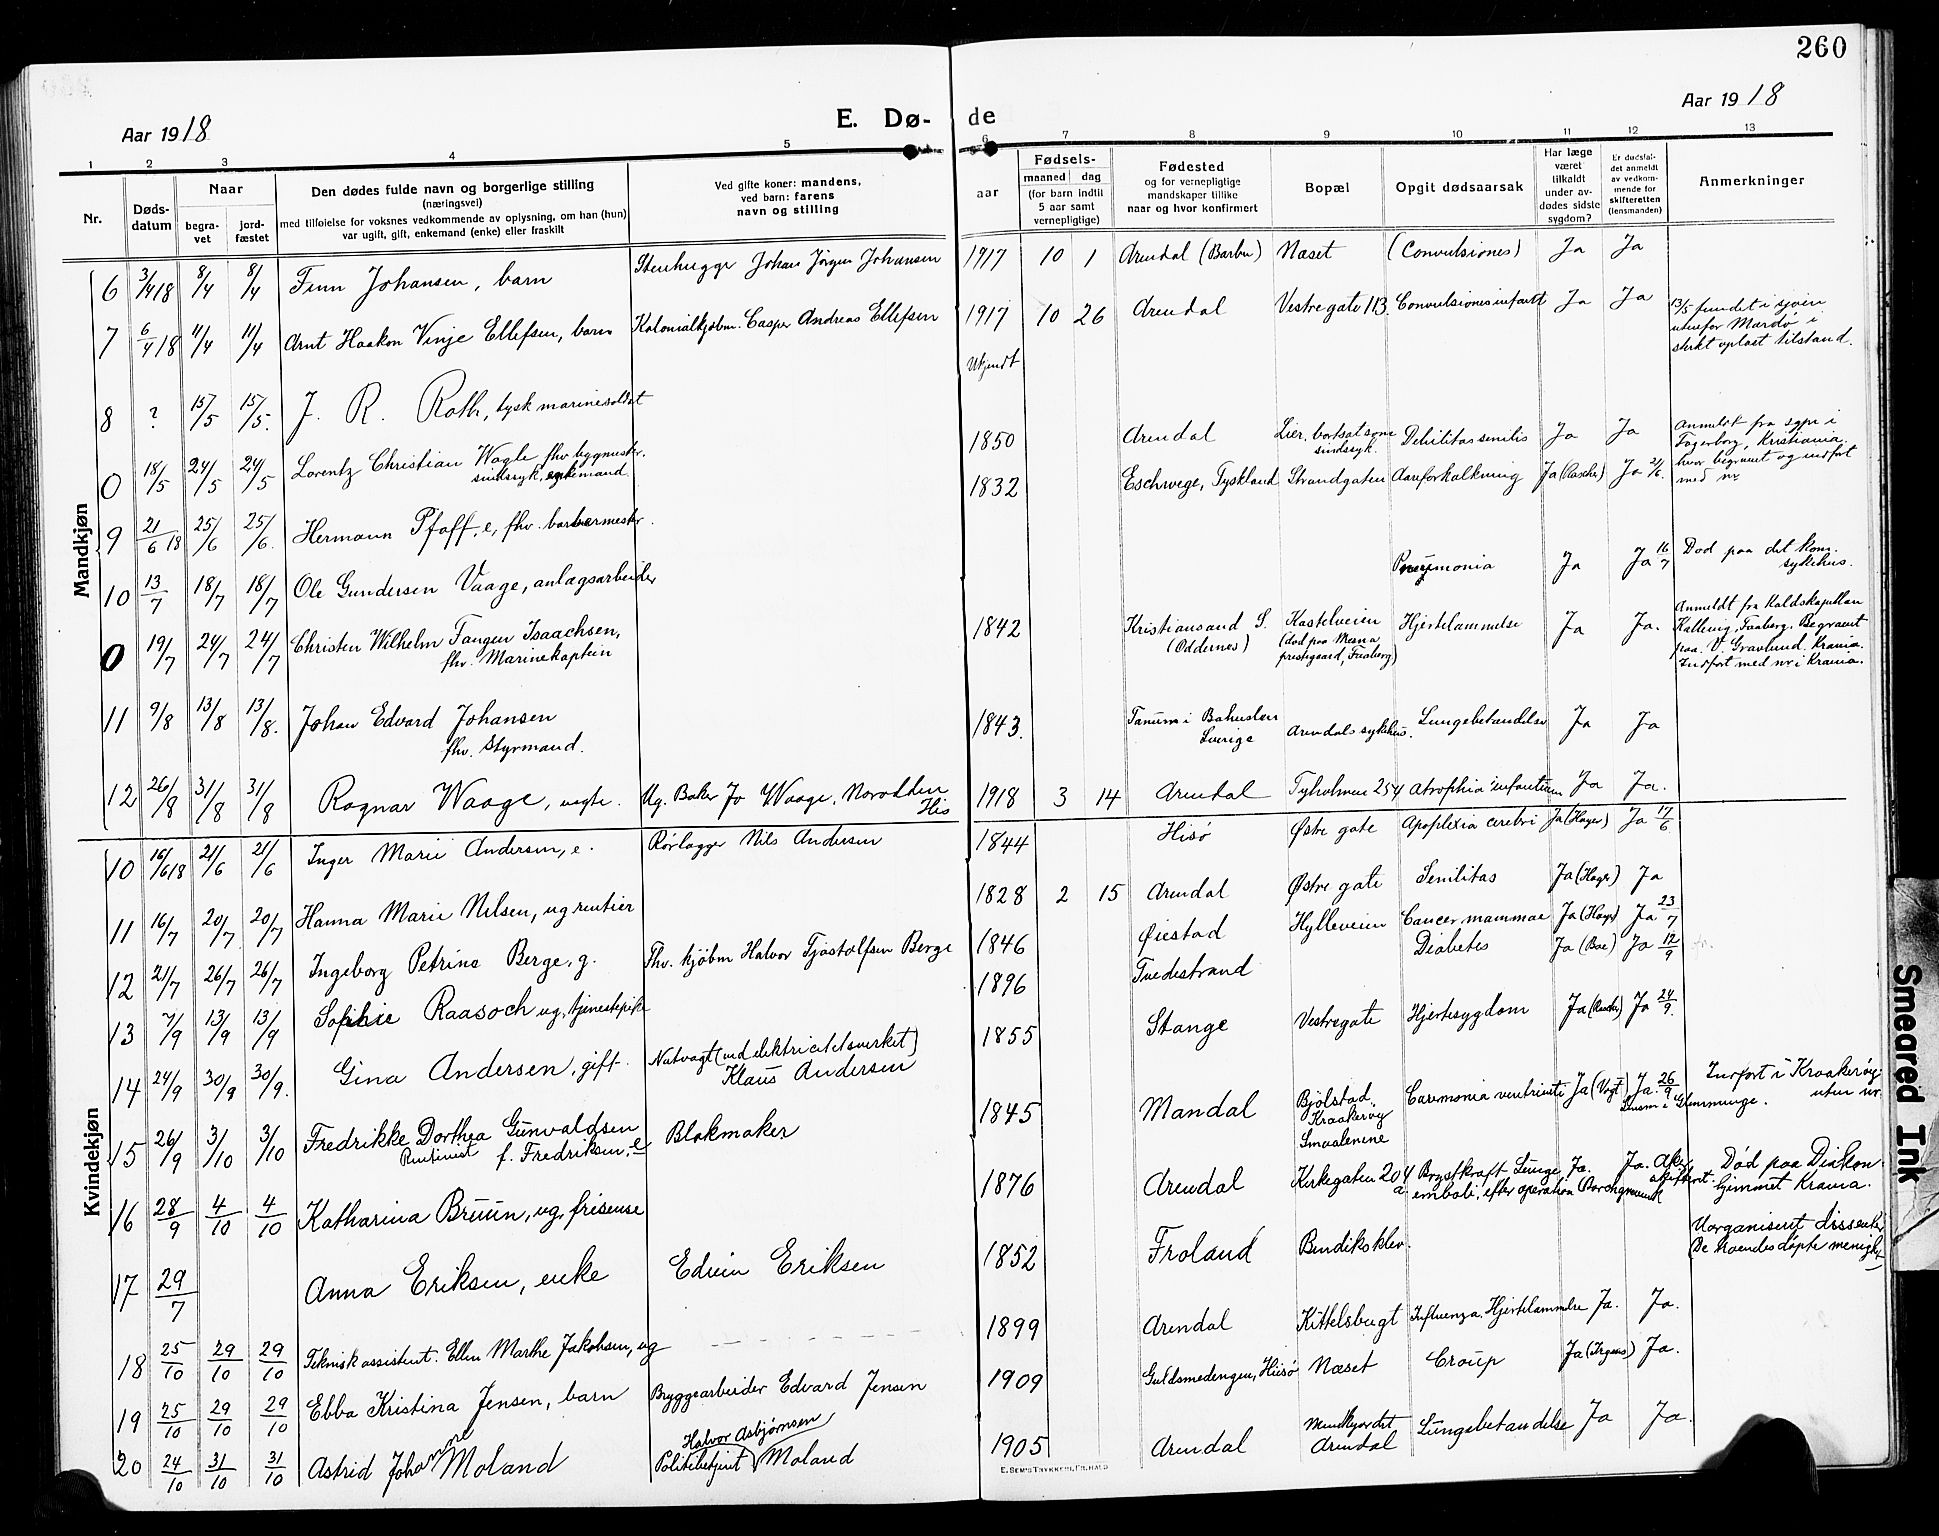 260
Aar 1918
E. Dø- de
Aar 1918
1 2 3 4 5 6 7 8 9 10 11 12 13
Nr.
Døds-
datum
Naar
begra-
vet
jord-
fæstet
Den dødes fulde navn og borgerlige stilling
(næringsvei)
med tilføielse for voksnes vedkommende av oplysning, om han (hun)
var ugift, gift, enkemand (enke) eller fraskilt
Ved gifte koner: mandens,
ved barn: farens
navn og stilling
aar
Fødsels-
maaned dag
(for barn indtil
5 aar samt
vernepligtige)
Fødested
og for vernepligtige
mandskaper tillike
naar og hvor konfirmert
Bopæl
Opgit dødsaarsak
Har læge
været
tilkaldt
under av-
dødes sidste
sygdom?
Er dødsfal-
det anmeldt
av vedkom-
mende for
skifteretten
(lensmanden)
Anmerkninger
Mandkjøn
6 3/4 18 8/4 8/4 Finn Johansen, barn Stenhugger Johan Jørgen Johansen 1917 10 1 Arendal (Barbu) Næset (Convulsiones) Ja Ja
7 6/4 18 11/4 11/4 Arnt Haakon Vinje Ellefsen, barn Kolonialkjøbm. Casper Andreas Ellefsen 1917 10 26 Arendal Vestregate 113. Convulsiones infantt Ja Ja
8 ? 15/5 15/5. J. R. Roth, tysk marinesoldat Ukjendt
13/5 fundet i sjøen
utenfor Mærdø i
sterkt opløst tilstand.
0 18/5 24/5 24/5 Lorentz Christian Wagle fhv. bygmester.
sindssyk, enkemand
1850 Arendal Lier, bortsat som
sindssyk.
Debilitas senilis Ja Ja
Anmeldt fra sgpr i
Fagerborg, Kristiania.
hvor begravet og indført
med nr
9 21/6 18 25/6 25/6. Hermann Pfaff, e, fhv. barbermester. 1832 Eschwege, Tyskland Strandgaten Aareforkalkning Ja Ja 21/6.
10 13/7 18/7 18/7 Ole Gundersen Vaage, anlægsarbeider Pneumonia Ja Ja 16/7
Død paa det kom.
sykehus.
0 19/7 24/7 24/7 Christen Wilhelm Tangen Isaachsen,
fhv. Marinekaptein
1842 Kristiansand S.
(Oddernes)
Kastelveien
(død paa Mesna
prestegaard, Faaberg)
Hjertelammelse Ja Ja.
Anmeldt fra Faaberg. Begravet
paa V. Gravlund. Krania.
Indført med nr i Krania.
11 9/8 13/8 13/8. Johan Edvard Johansen
fhv. Styrmand.
1843. Tanum i Bahuslen
Sverige
Arendals sykehus. Lungebetændelse Ja Ja
12 26/8 31/8 31/8 Ragnar Waage, uegte. Ug. Baker Jo Waage, Norodden
His
1918 3 14 Arendal Tyholmen 254 Atrophia infantium Ja Ja.
Kvindekjøn
10 16/6 18 21/6 21/6 Inger Marie Andersen, e. Rørlægger Nils Andersen 1844 Hisø Østre gate Apoplexia cerebri Ja Ja 17/6
11 16/7 20/7 20/7 Hanna Marie Nilsen, ug rentier 1828 2 15 Arendal Østre gate Senilitas Ja Ja
12 21/7 26/7 26/7 Ingeborg Petrine Berge, g. Fhv. kjøbm Halvor Tjøstolfsen Berge 1846 Øiestad Hylleveien Cancer mammae Ja Ja 23/7
13 7/9 13/9 13/9 Sophie Raasoch ug, tjenestepike 1896 Tvedestrand Diabetes Ja (Boe) Ja 12/9
14 24/9 30/9 30/9. Gina Andersen, gift. Natvagt (ved elektricitetsverket)
Klaus Andersen
1855 Stange Vestregate Hjertesygdom Ja Ja 24/9.
15 26/9 3/10 3/10 Fredrikke Dorthea Gunvaldsen
f. Fredriksen, e
Blokmaker 1845 Mandal Bjølstad.
Kraakerøy
Smaalenene
ventriculi Ja (Vogt) Ja 26/9
Lensm i Glemminge.
Indført i Kraakerøy
uten nr.
16 28/9 4/10 4/10 Katharina Bruun, ug, friseuse 1876 Arendal Kirkegaten 204
a
Brystkræft Lunge-
emboli, efter operation
Ja. Ja. Aker
skifteret.
Død paa Diakon-
hjemmet Krania.
17 29/7 Anna Eriksen, enke Edvin Eriksen 1852 Froland Bendiksklev.
Uorganisert dissenter
(De troendes døpte menigh.)
18 25/10 29/10 29/10 Teknisk assistent. Ellen Marthe Jakobsen, ug 1899 Arendal Kittelsbugt Influenza. Hjertelammelse Ja. Ja.
19 25/10 29/10 29/10 Ebba Kristina Jensen, barn Bryggearbeider Edvard Jensen 1909 Guldsmedengen, Hisø Næset Croup Ja Ja.
20 24/10 31/10 31/10 Astrid Johanne Moland Politibetjent Halvor Asbjørnsen Moland 1905 Arendal Arendal Lungebetændelse Ja Ja.
E. SEM'S TRYKKERI, FR.HALD
Smeared Ink